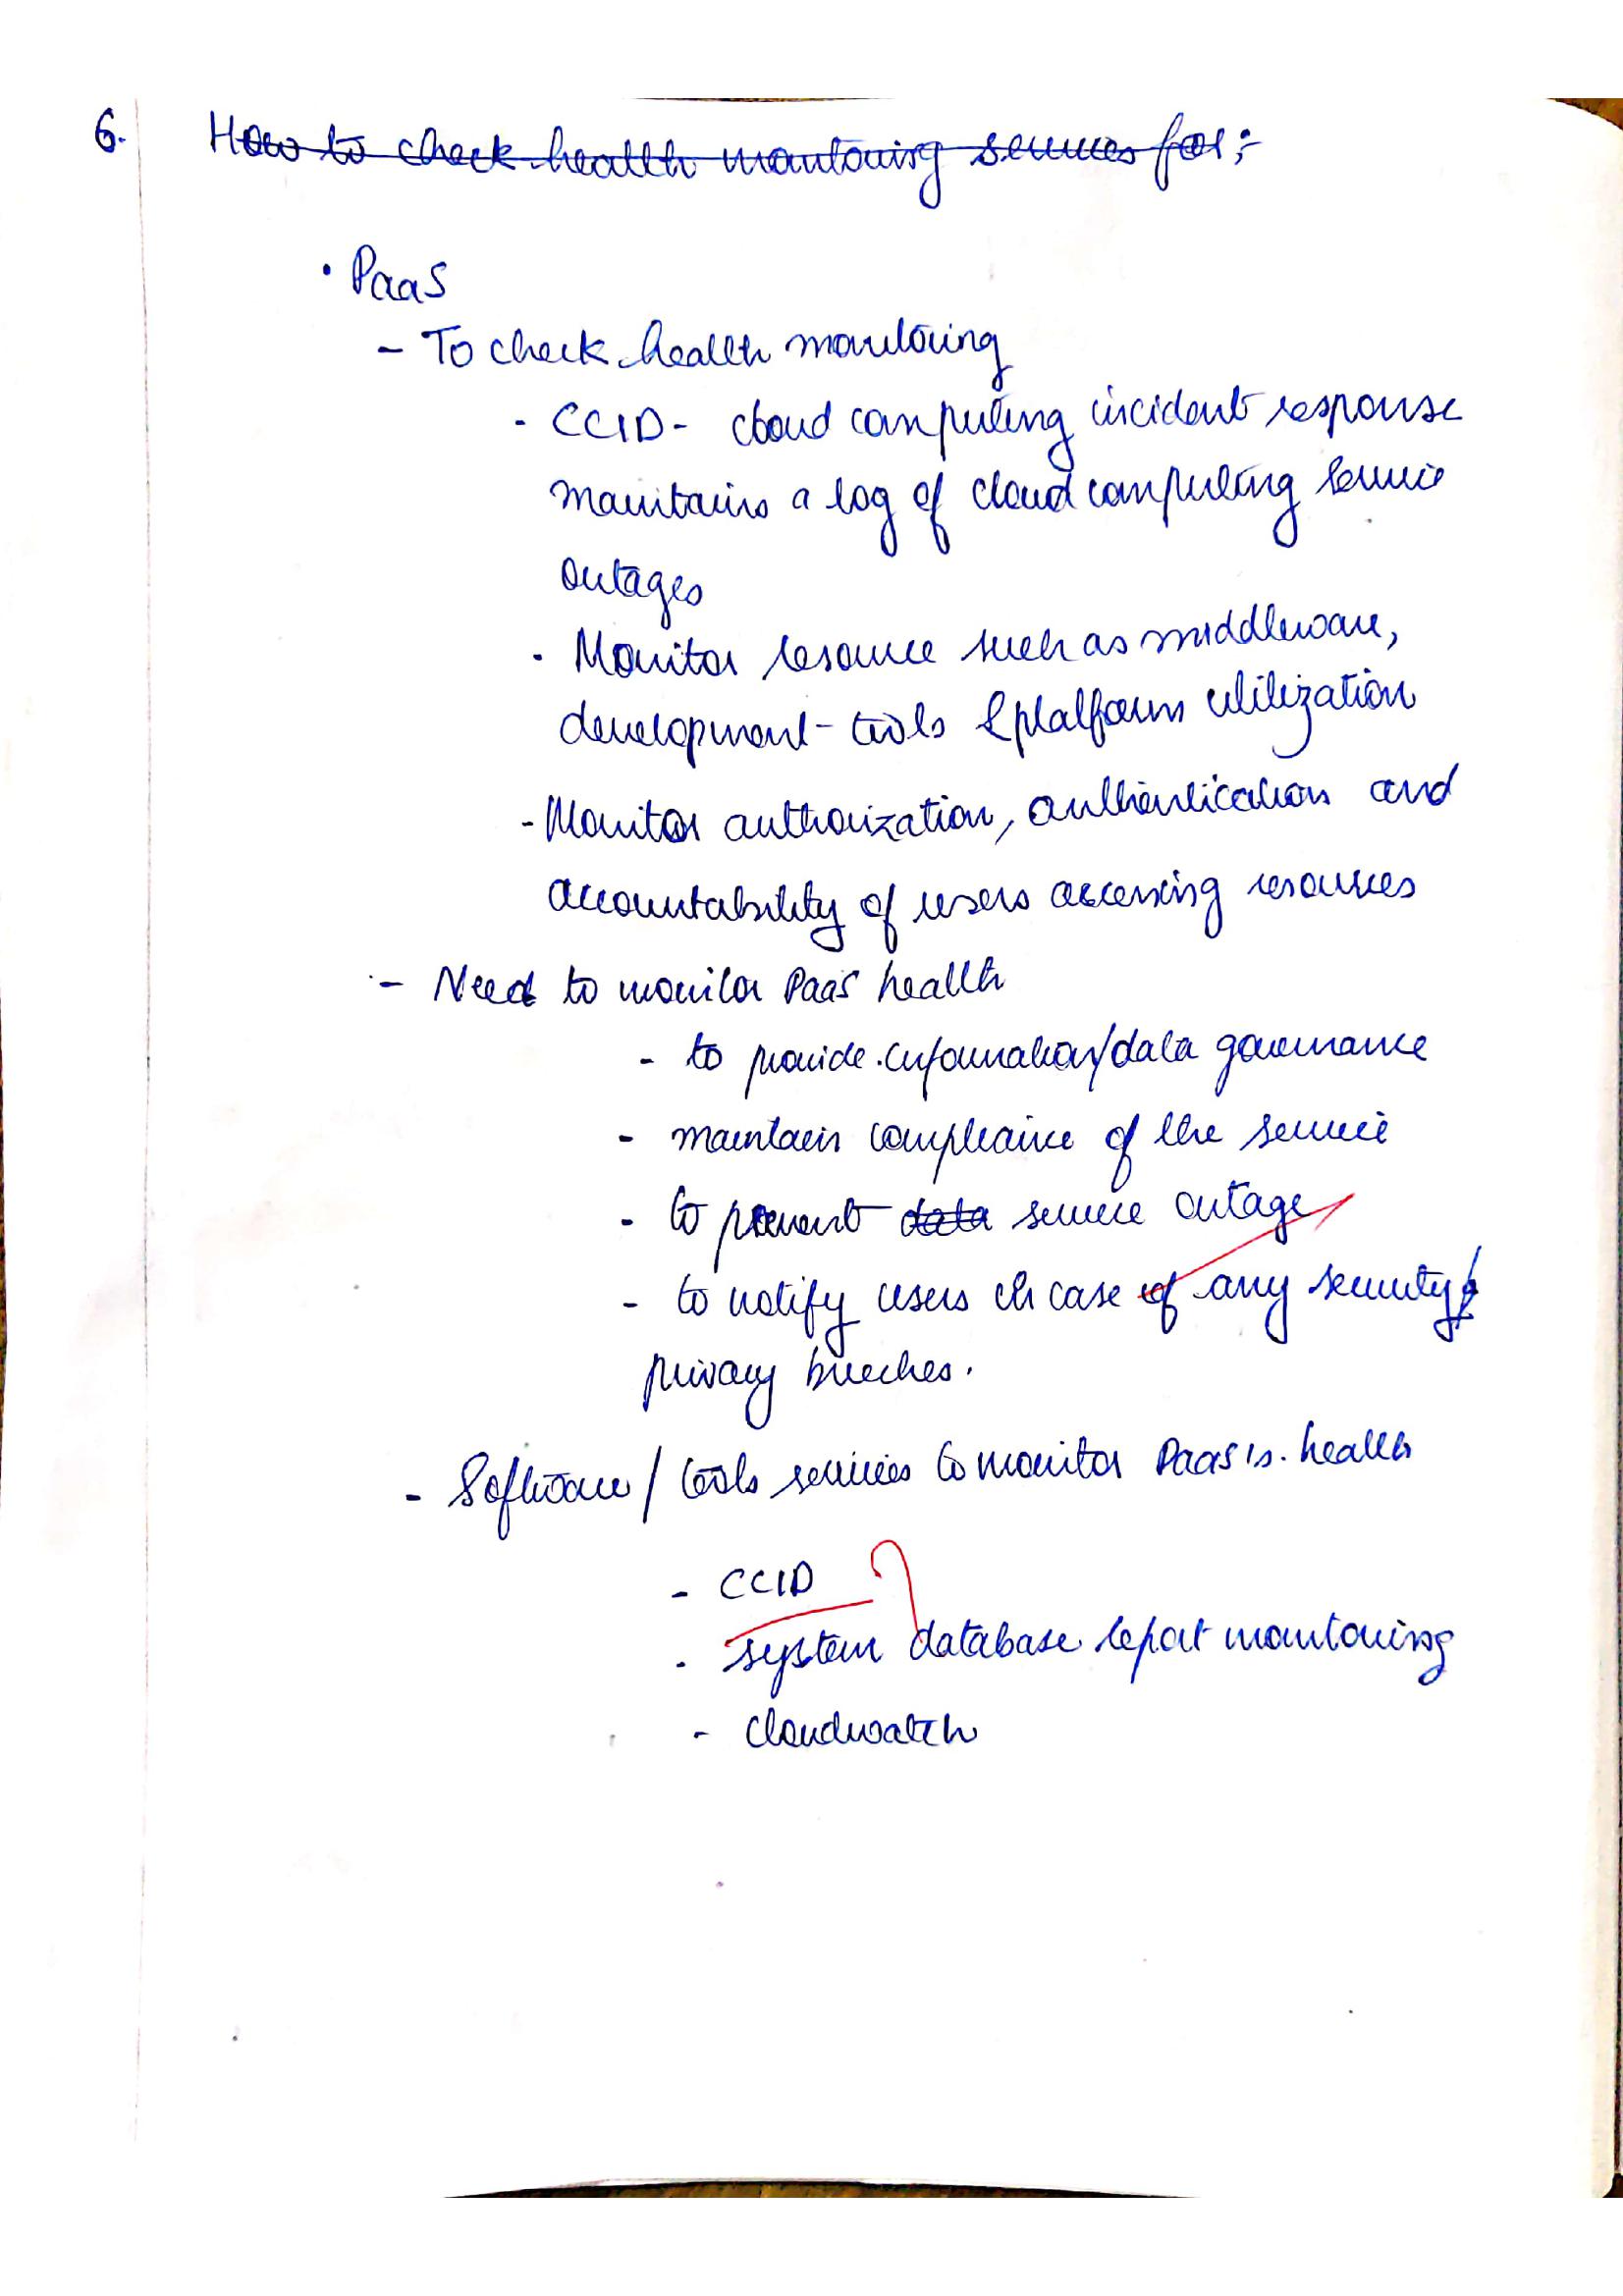 6. How to check health monitoring services for :-
• PaaS
- To check health monitoring
- CCID - cloud computing incident response
maintains a log of cloud computing service
outages
• Monitor resource such as middleware,
development tools & platform utilization
- Monitor authorization, authentication and
accountability of users accessing resources
- Need to monitor PaaS health
- to provide information/data governance
- maintain compliance of the service
- to prevent data service outage
- to notify users in case of any security/
privacy breeches.
- Software / tools services to monitor PaaS's health
- CCID
- system database report monitoring
- cloudwatch